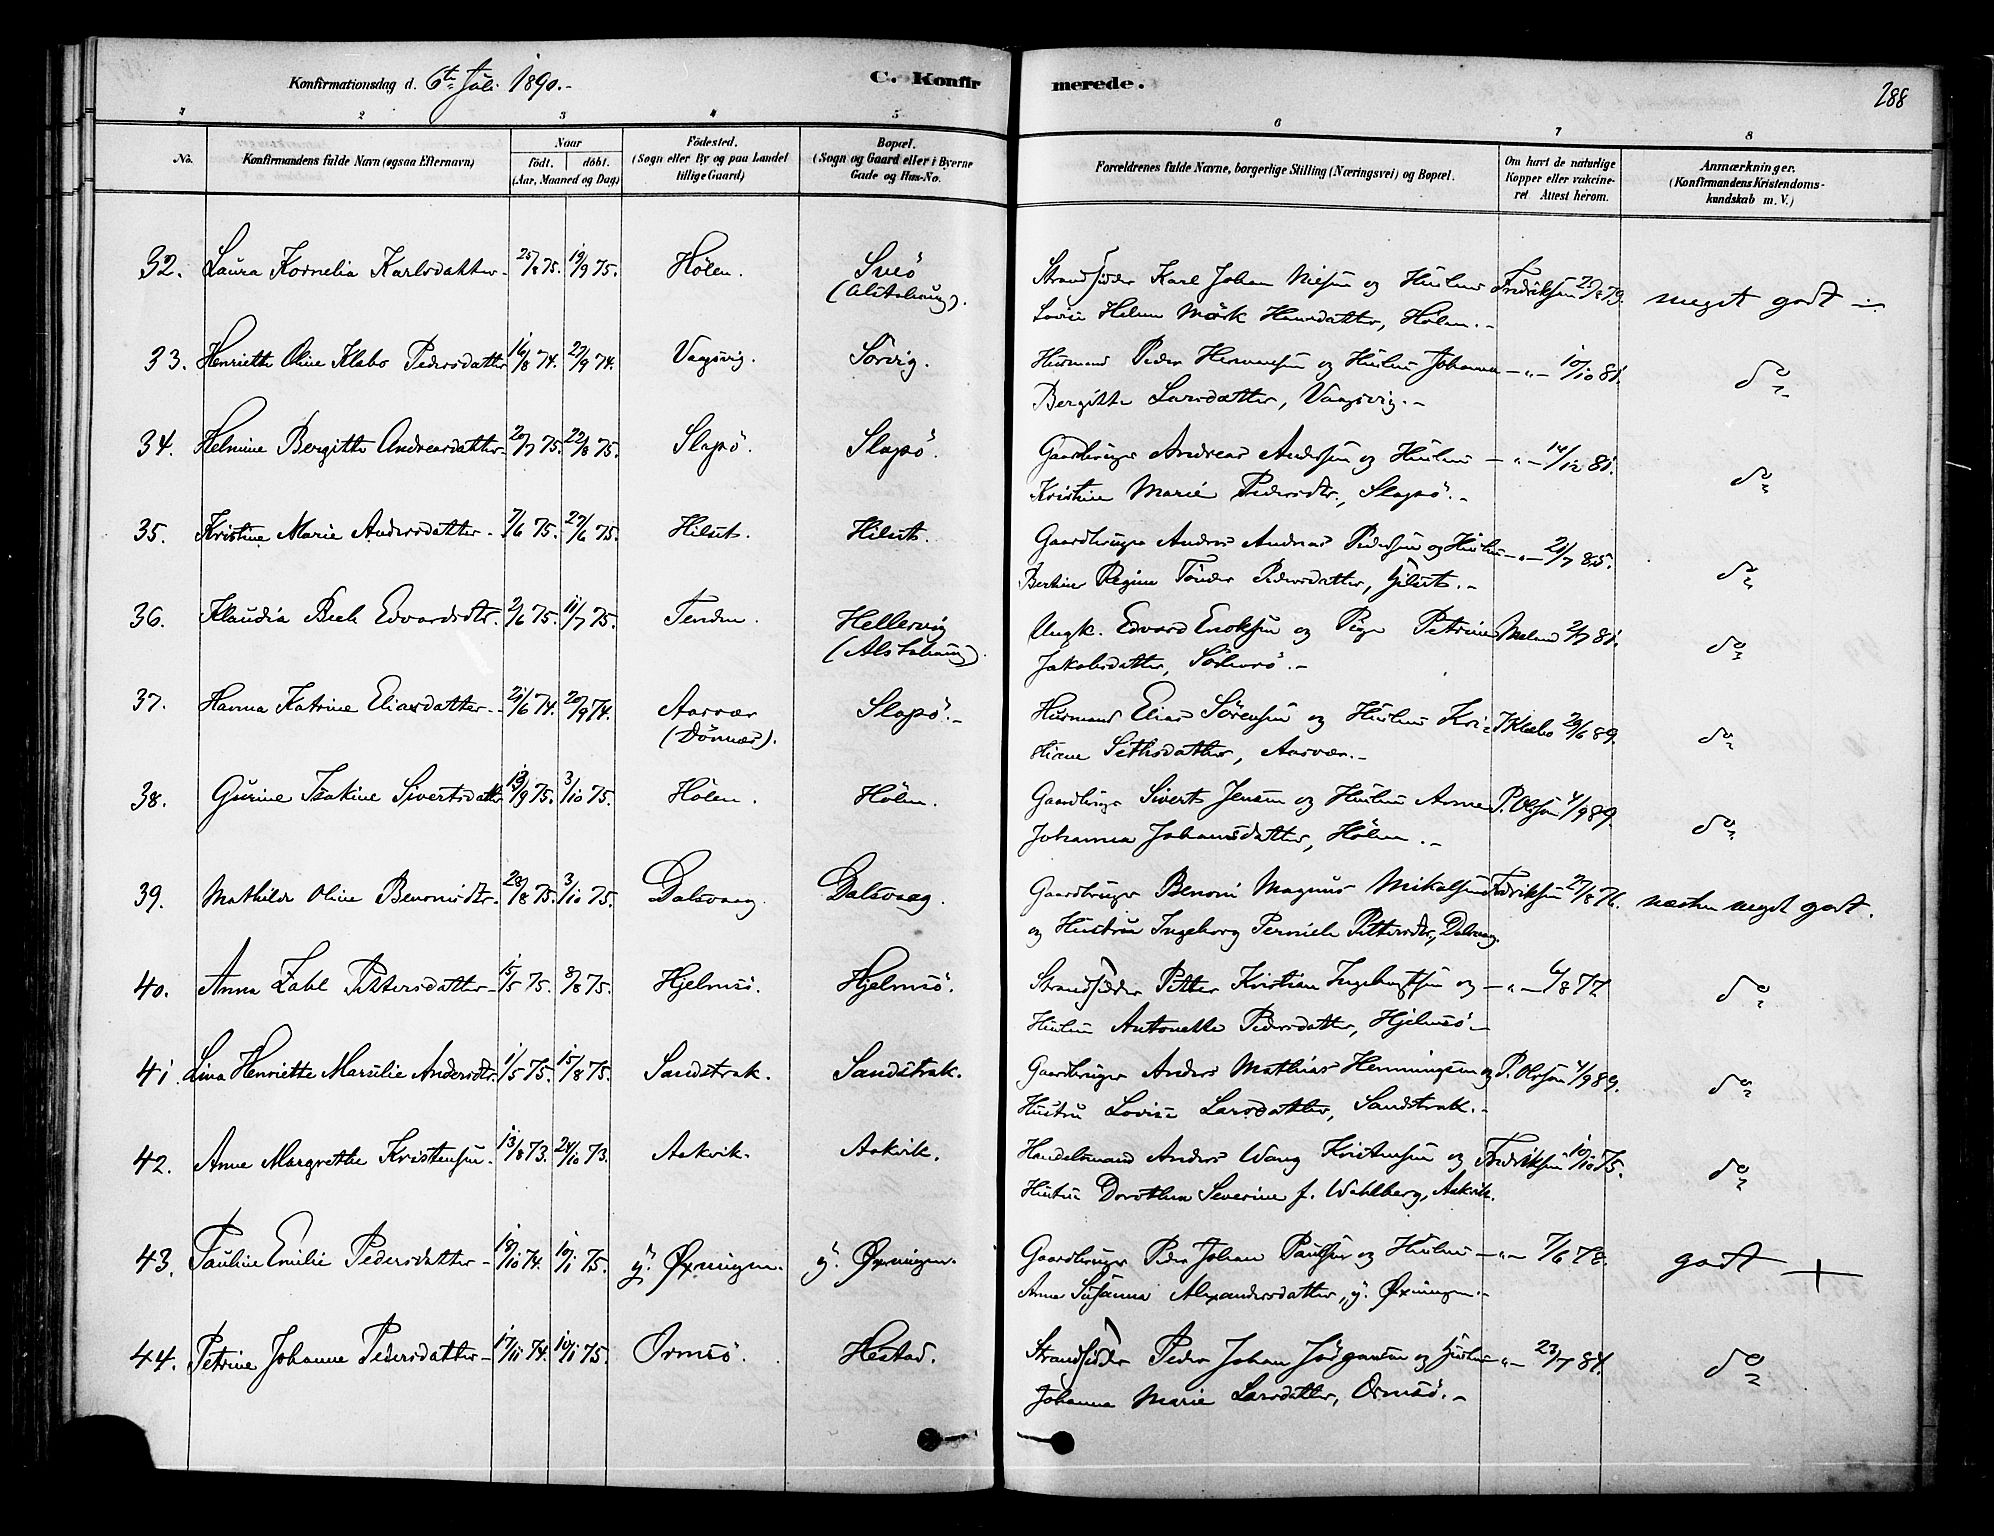 Konfirmationsdag d. 6te Juli 1890.-
C. Konfirmerede.
288
1 2 3 4 5 6 7 8
No.
Konfirmandens fulde Navn (ogsaa Efternavn)
Naar
födt. döbt.
(Aar, Maaned og Dag)
Födested.
(Sogn eller By og paa Landet
tillige Gaard)
Bopæl.
(Sogn og Gaard eller i Byerne
Gade og Hus-No.
Forældrenes fulde Navne, borgerlige Stilling (Næringsvei) og Bopæl.
Om havt de naturlige
Kopper eller vakcine-
ret Attest herom.
Anmærkninger.
(Konfirmandens Kristendoms-
kundskab m. V.)
32. Laura Kornelia Karlsdatter- 19/9 75. Hölen. (Alstahaug). Strandsidder Karl Johan og Hustru Fredriksen meget godt
Helene Mörk Hansdatter, Hölen.-
33. Henriette Oline Klæbo Pedersdatter 16/8 74. 27/9 74. Vaagsvig. Sörvig. Husmand Peder Hermansen og Hustru Johanna -„- 10/10 81. do
Bergitte Larsdatter, Vaagsvig.-
34. Helmine Bergitte Andreasdatter- 20/7 75. 22/8 75. Slapö. Slapö. Gaardbruger Andreas Andersen og Hustru -„- 14/12 81. do
Kristine Marie Pedersdtr., Slapö.-
35. Kristine Marie Andersdatter- 7/6 75. 27/6 75. Hilset. Hilset. Gaardbruger Anders Andreas Pedersen og Hustru -„- 21/7 85. do
Regine Tönder Pedersdatter, Hilset.-
36. Klaudia Bech Edvardsdtr. 2/6 75. 11/7 75. Hellesvig Ungk. Edvard Enoksen og Pige Petrine do
(Alstahaug). Jakobsdatter,
37. Hanna Katrine Eliasdatter- 21/6 74. 20/9 74. Aasvær Slapö.- Husmand Elias Sörensen og Hustru Kri- Klæbo 29/6 89. do
(Dönnæs). stiane Sethsdatter, Aasvær.-
38. Gurine Isakine Sivertsdatter 19/9 75. 3/10 75. Hölen. Hölen. Gaardbruger Sivert Jensen og Hustru Anne P. Olsen 4/9 89. do
Johanna Johansdatter, Hölen.-
39. Mathilde Oline Benonisdtr. 28/8 75. 3/10 75. Dalsvaag. Dalsvaag. Gaardbruger Benoni Magnus Mikalsen Fredriksen 27/8 76. næsten meget godt.
og Hustru Ingeborg Pernele Pettersdtr., Dalsvaag.
40. Anna Zahl Pettersdatter- 15/5 75. 8/8 75. Hjelmsö. Hjelmsö. Strandsidder Petter Kristian Ingebrigtsen og -„- 6/8 77. do
Hustru Antonette Pedersdatter, Hjelmsö.-
41. Lina Henriette Marselie Andersdtr. 1/5 75. 15/8 75. Sandstrak. Sandstrak. Gaardbruger Anders Mathias Henningsen og P. Olsen 4/9 89. do
Hustru Lovise Larsdatter, Sandstrak.-
42. Anne Margrethe Kristensen- 13/8 73. 24/10 73. Aakvik. Aakvik. Handelsmand Anders Wang Kristensen og Fredriksen 10/10 75. do
Hustru Dorothea Severine f. Wahlberg, Aakvik.
43. Pauline Emilie Pedersdatter- 18/10 74. 10/1 75. y. Øxningen. y. Øxningen. Gaardbruger Peder Johan Paulsen og Hustru -„- 7/6 78. godt +
Anne Susanna Alexandersdatter, y. Øxningen.-
44. Petrine Johanne Pedersdatter- 17/11 74. 10/1 75. Ormsö. Hestad. Strandsidder Peder Johan Jörgensen og Hustru -„- 23/7 84. do
Johanna Marie Larsdatter, Ormsö.-